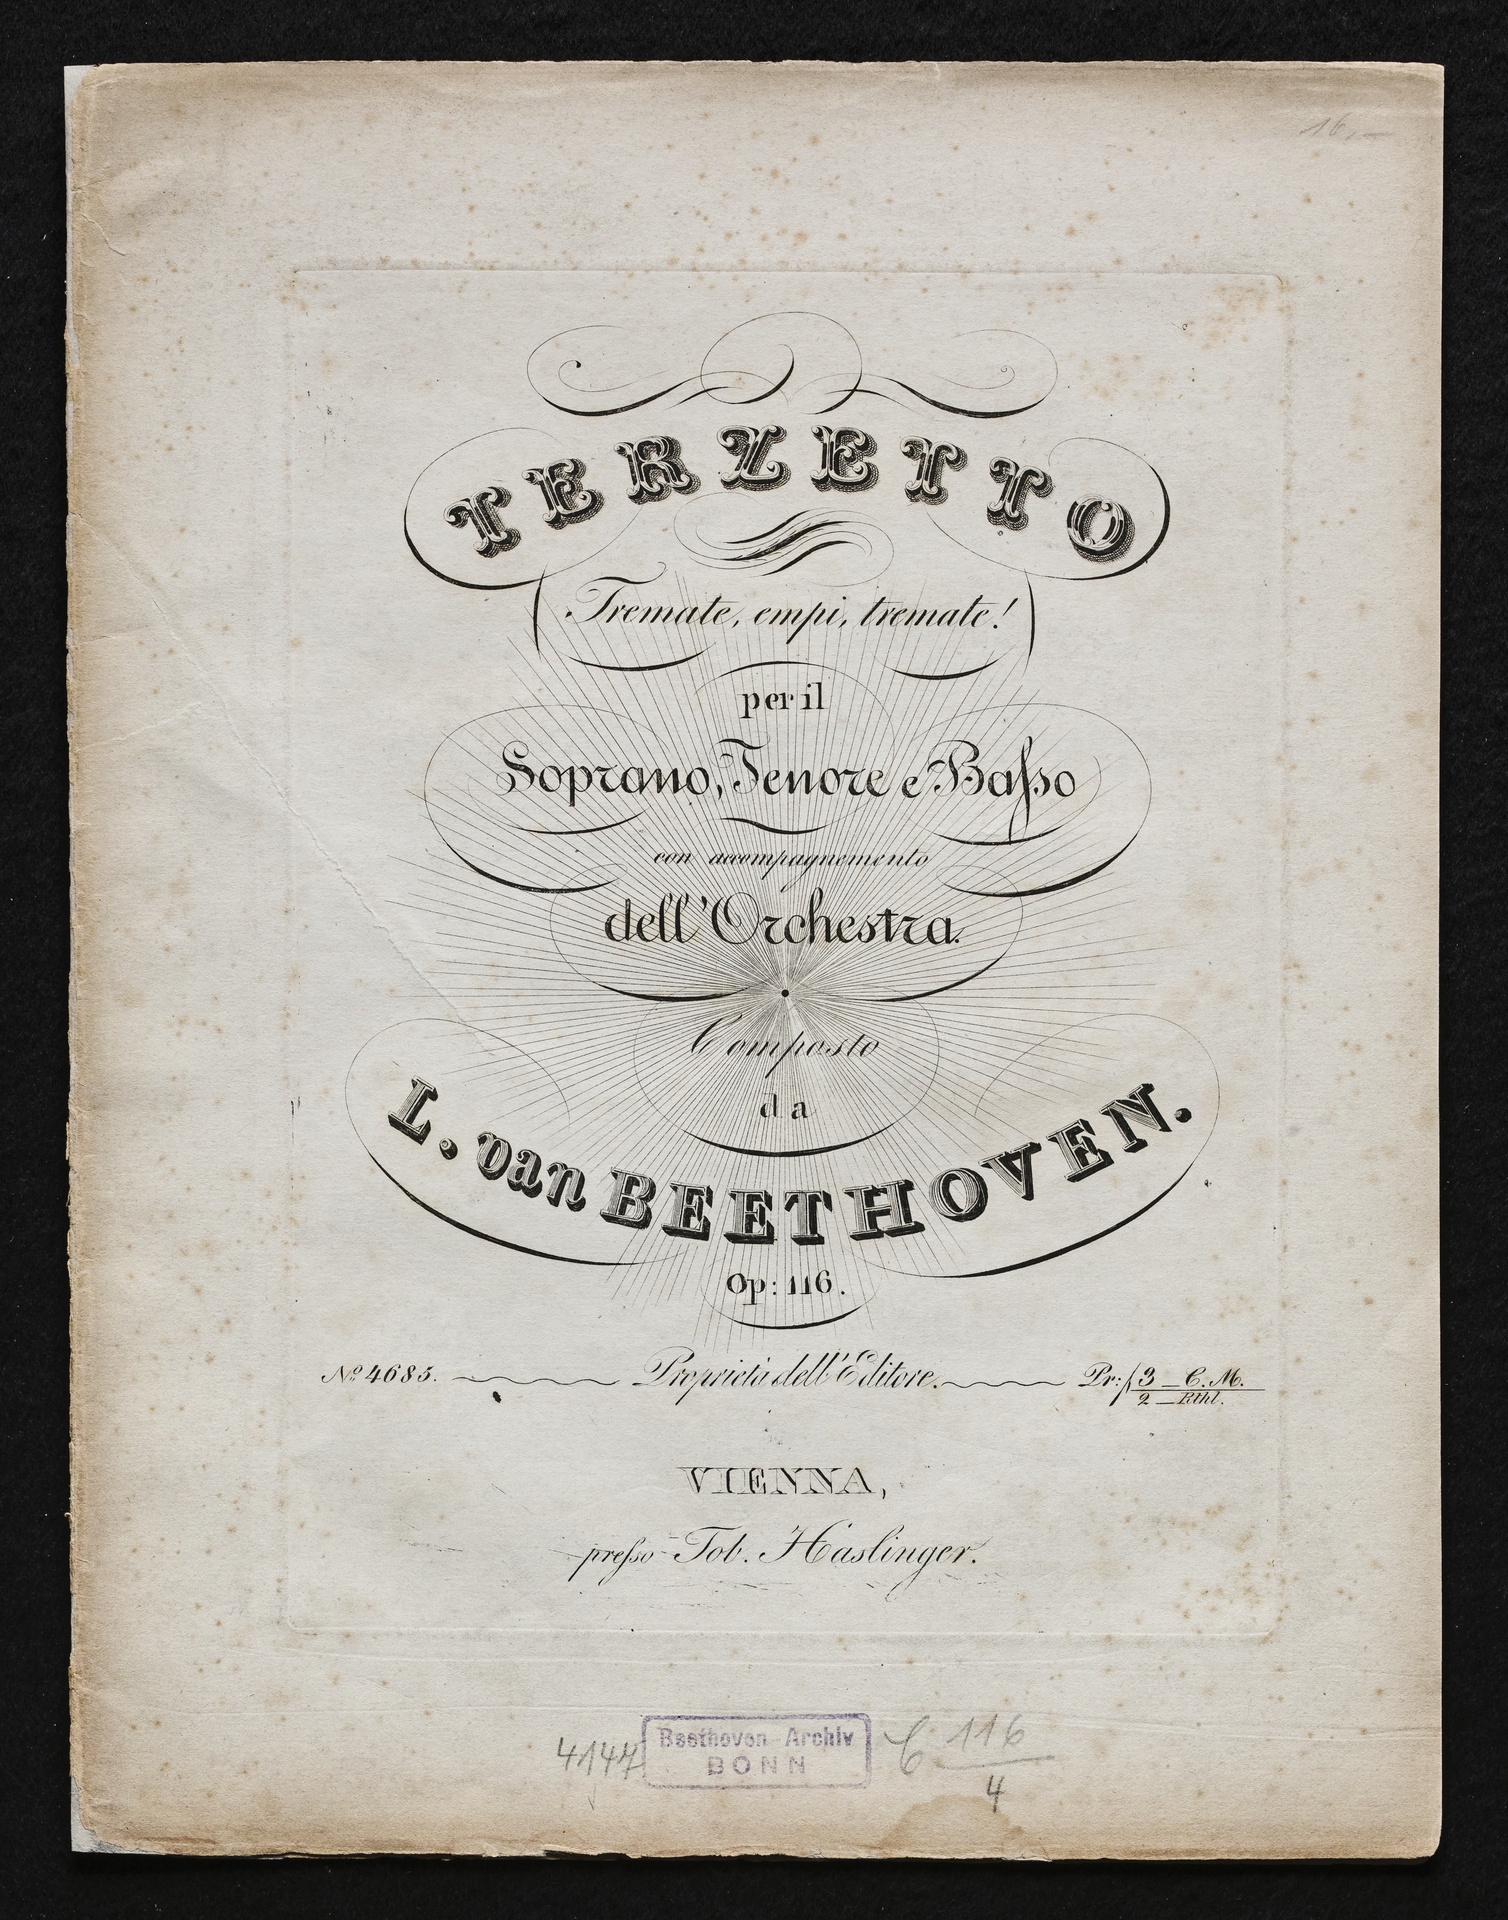 16,–
TERZETTO
Tremate, empi, tremate!
per il
Soprano, Tenore e Baſso
con accompagnemento
dell'Orchestra.
Composto
da
L. van BEETHOVEN.
Op: 116.
No. 4685. Proprietà dell'Editore. Pr: f 3 – C. M.
2 – Rthl.
VIENNA,
preſso Tob. Haslinger.
4147 Beethoven-Archiv C 116
BONN
4